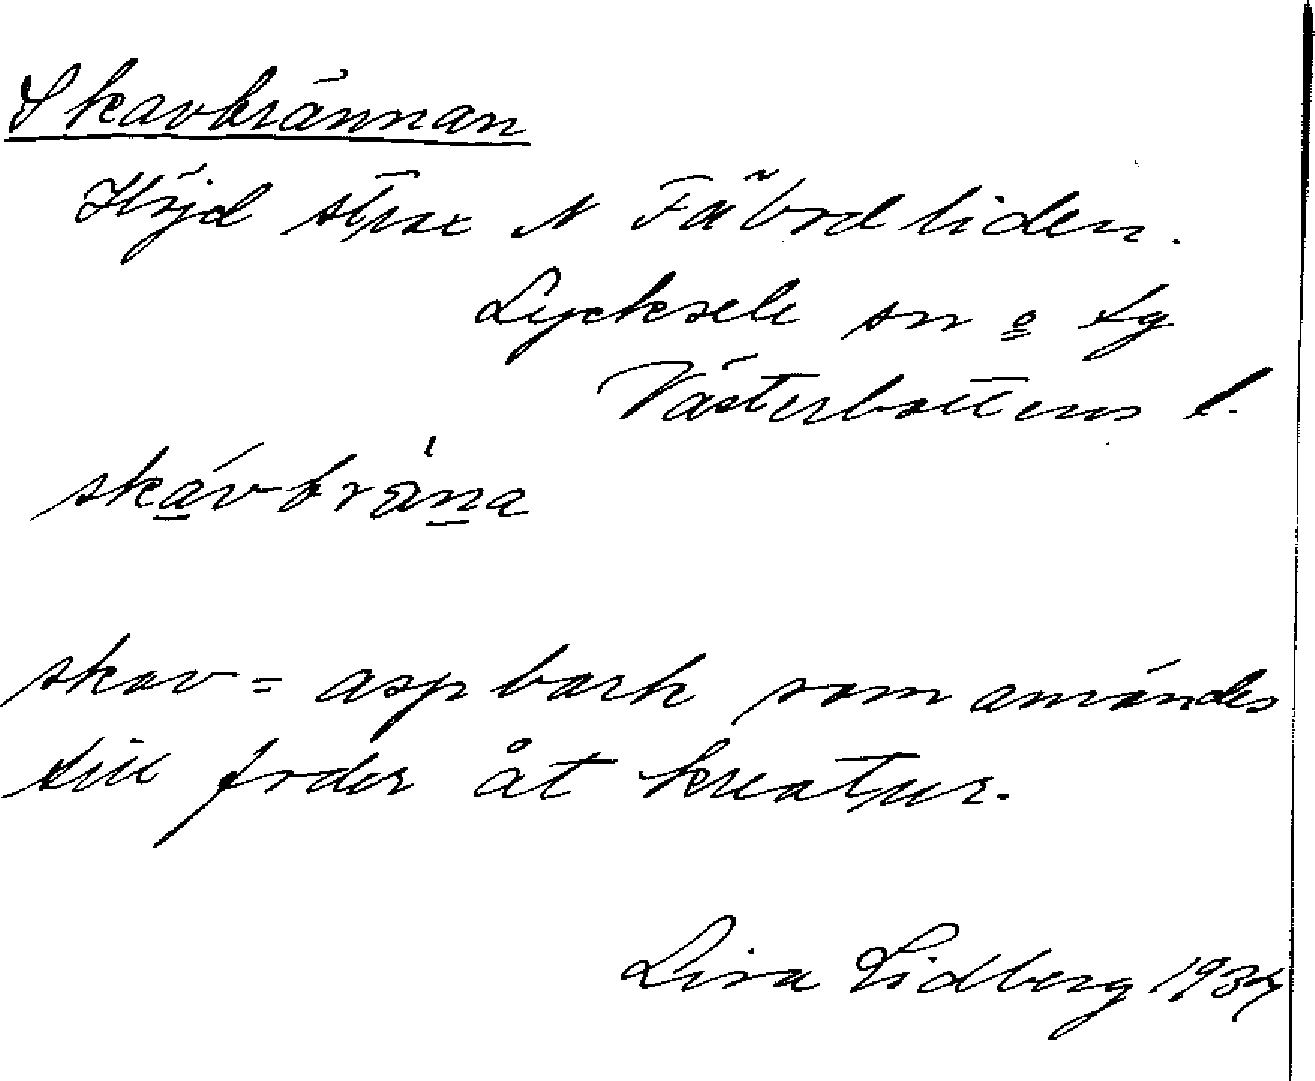 Skavbrännan
Höjd strax N Fäbodliden.
Lycksele sn o lg
Västerbottens l.
skávbrä̀na
skav = aspbark som användes
till foder åt kreatur.
Lisa Lidberg